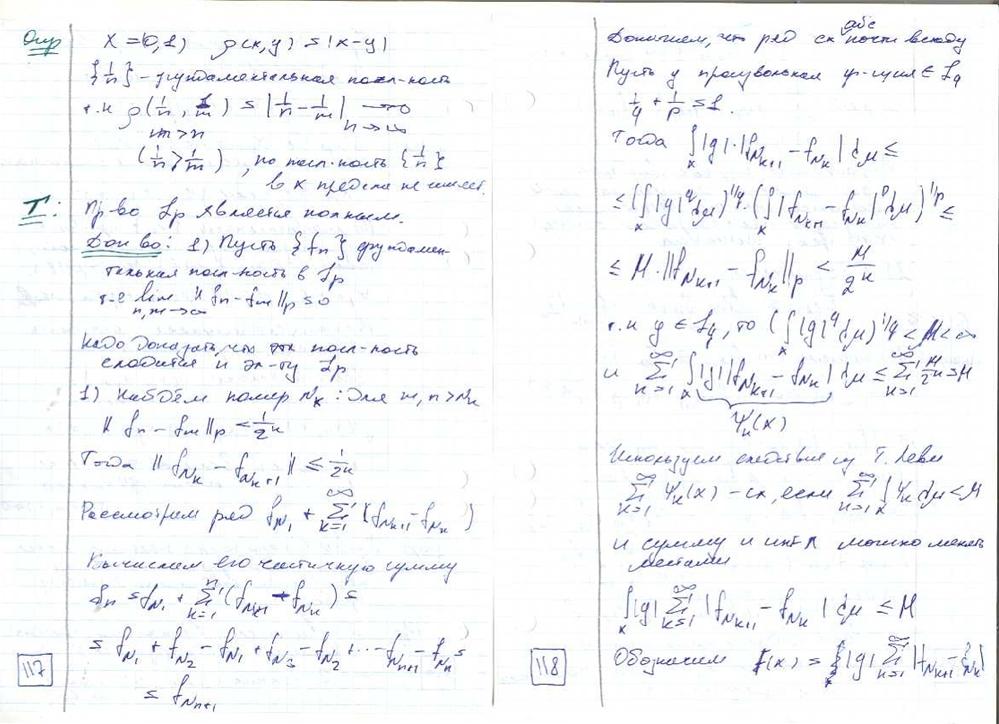 Опр X = (0,1) ρ(x,y) = |x-y|
{1/n} - фундаментальная посл-ность
т.к ρ(1/n, 1/m) = |1/n - 1/m| → 0
m>n n→∞
(1/n > 1/m), но посл-ность {1/n}
в X предела не имеет.
Т: Пр-во Lp является полным.
Док-во: 1) Пусть {fn} фундамен-
тальная посл-ность в Lp
т.е lim ||fn - fm||p = 0
n,m→∞
Надо доказать, что эта посл-ность
сходится к эл-ту Lp
1) Найдём номер Nk: для m,n > Nk
||fn - fm||p < 1/2^k
Тогда ||fNk - fNk+1|| ≤ 1/2^k
Рассмотрим ряд fN1 + ∑_{k=1}^∞ (fNk+1 - fNk)
Вычислим его частичную сумму
Sn = fN1 + ∑_{k=1}^n (fNk+1 - fNk) =
= fN1 + fN2 - fN1 + fN3 - fN2 + ... fNn+1 - fNn =
= fNn+1
117
абс
Докажем, что ряд сх почти всюду
Пусть g произвольная ф-ция ∈ Lq
1/q + 1/p = 1.
Тогда ∫_X |g|·|fNk+1 - fNk| dμ ≤
≤ (∫_X |g|^q dμ)^{1/q} · (∫_X |fNk+1 - fNk|^p dμ)^{1/p} ≤
≤ M·||fNk+1 - fNk||p < M/2^k
т.к g ∈ Lq, то (∫_X |g|^q dμ)^{1/q} < M < ∞
и ∑_{k=1}^∞ ∫_X |g||fNk+1 - fNk| dμ ≤ ∑_{k=1}^∞ M/2^k = M
Ψk(x)
Используем следствие из Т. Леви
∑_{k=1}^∞ Ψk(x) - сх, если ∑_{k=1}^∞ ∫_X Ψk dμ ≤ M
и сумму и инт-л можно менять
местами
∫_X |g| ∑_{k=1}^∞ |fNk+1 - fNk| dμ ≤ M
Обозначим F(x) = |g| ∑_{k=1}^∞ |fNk+1 - fNk|
118